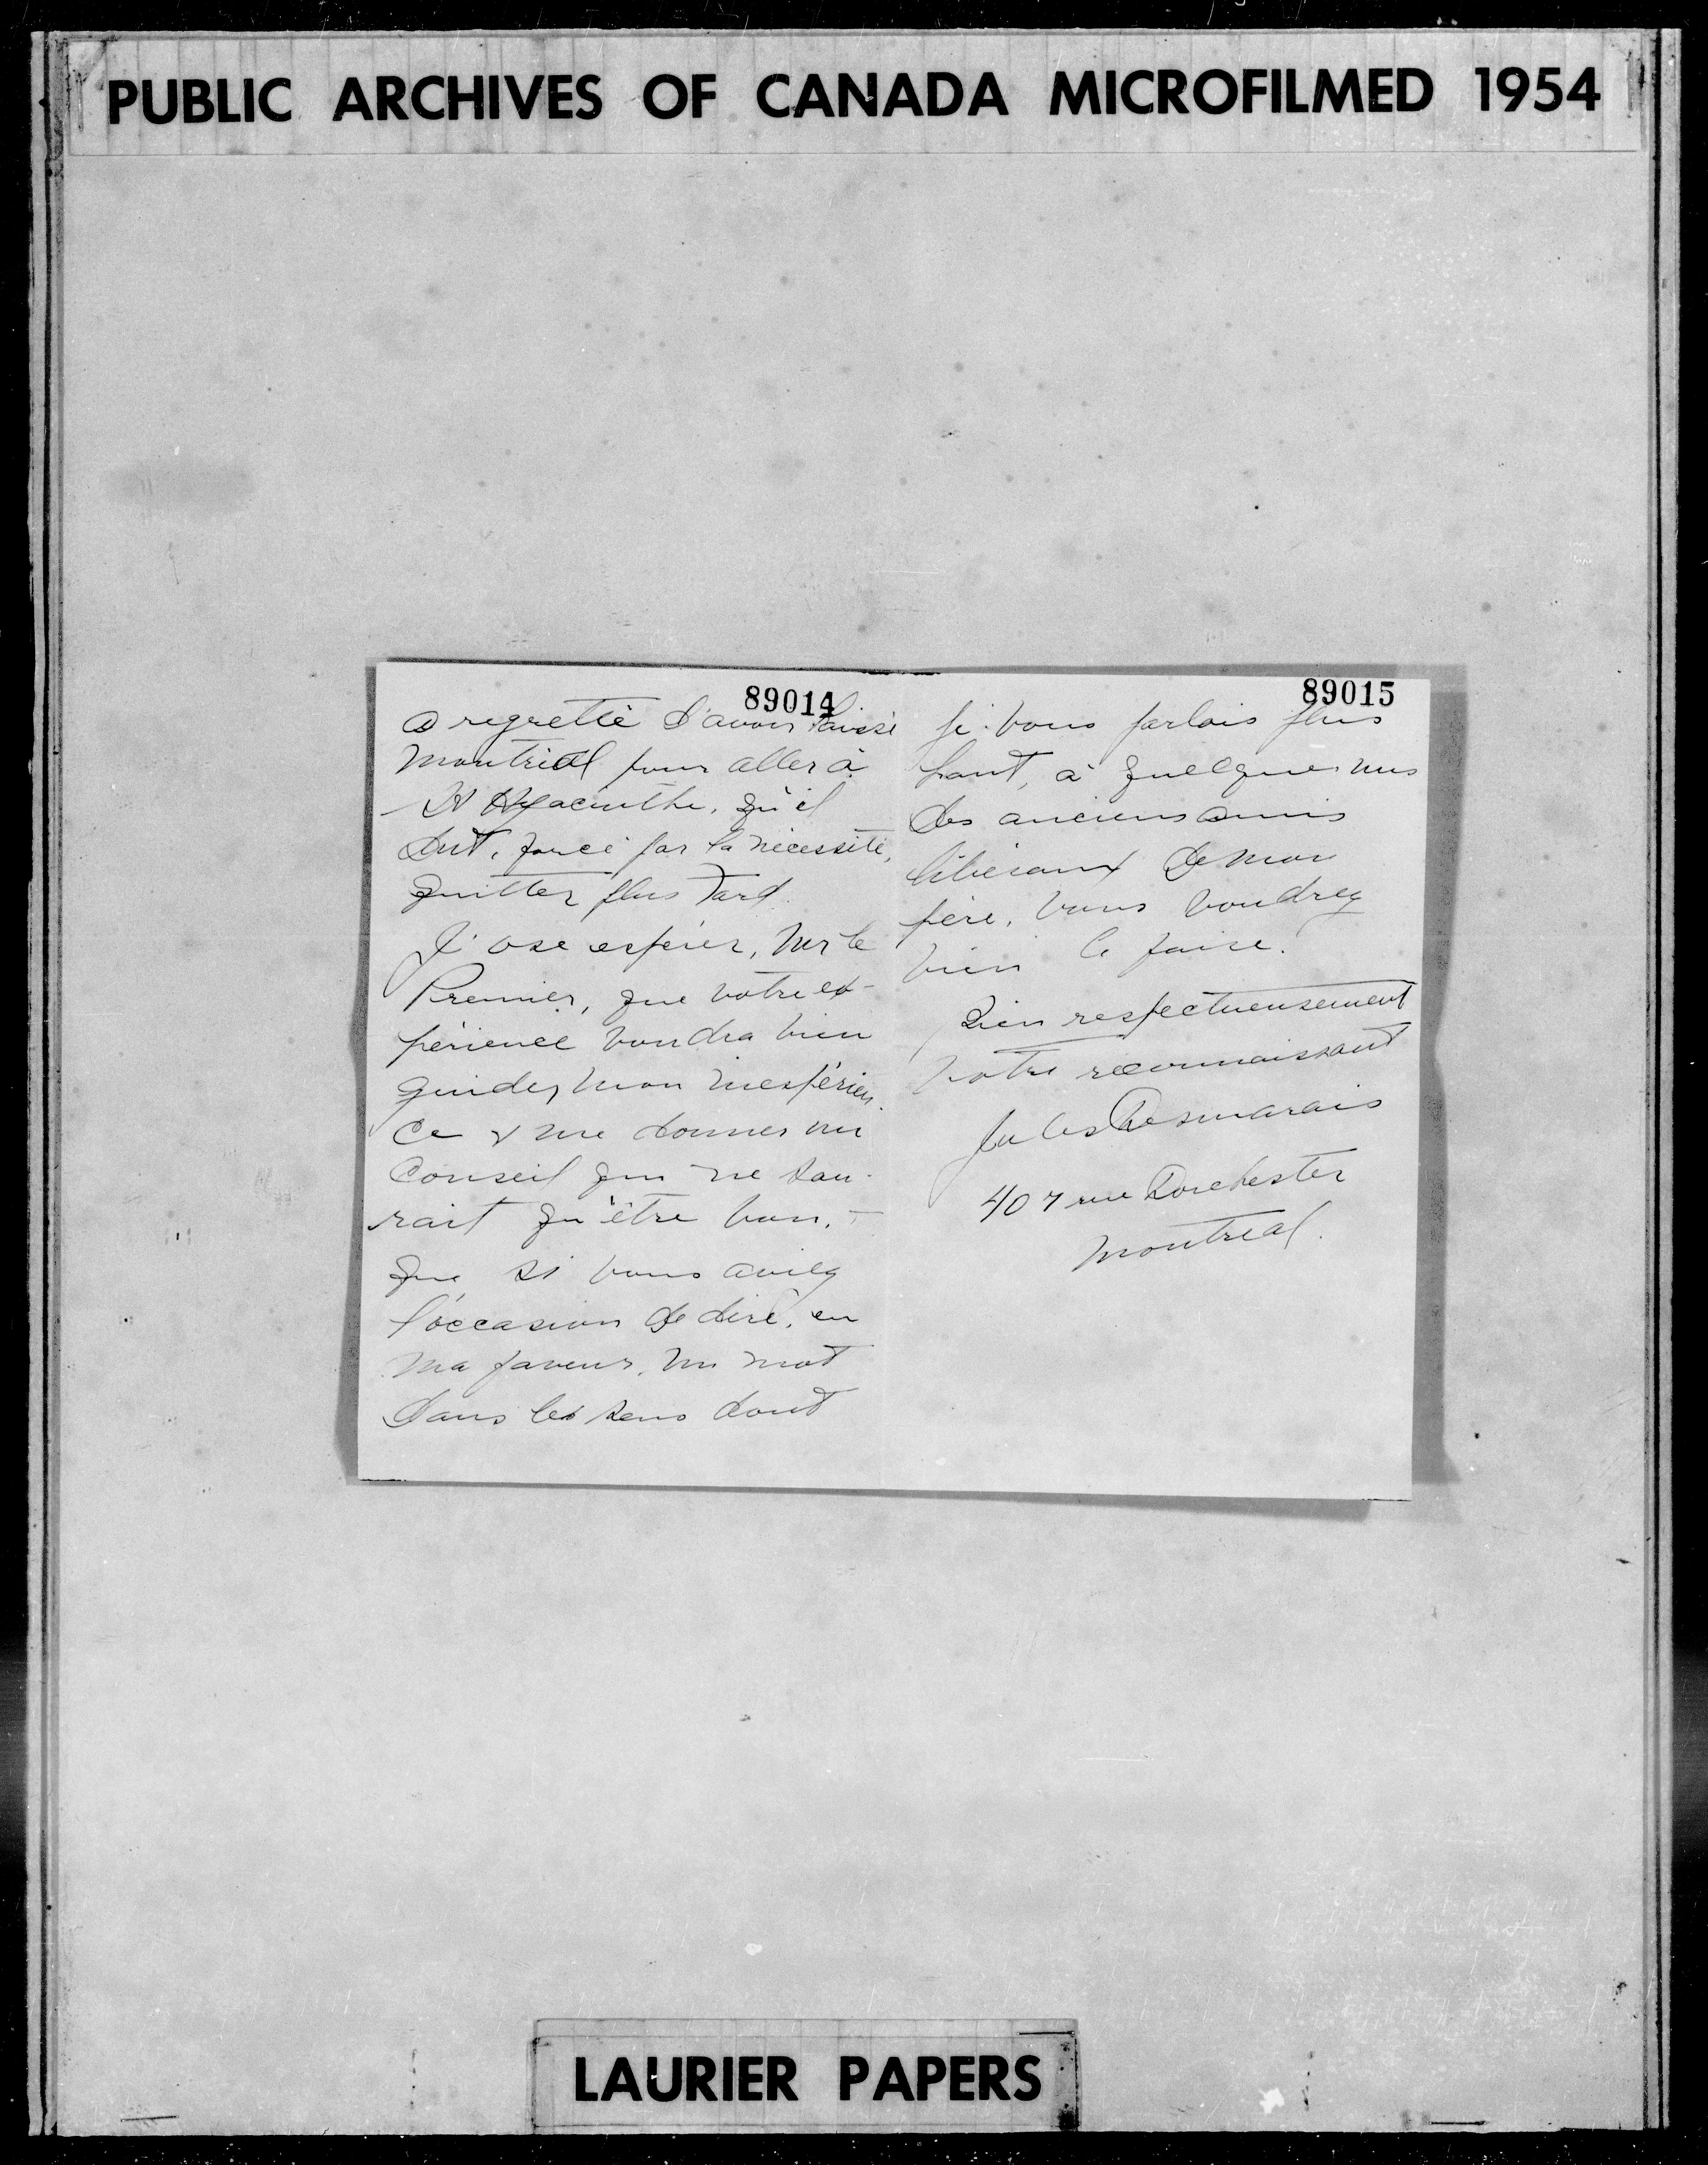 PUBLIC ARCHIVES OF CANADA MICROFILMED 1954
89014
a regretté d'avoir laissé
Montréal pour aller à
St Hyacinthe, qu'il
dut, forcé par la nécessité,
quitter plus tard.
J'ose espérer, Mr le
Premier, que votre ex-
périence voudra bien
guider mon inexpérien-
ce & me donner un
conseil qui ne sau-
rait qu'être bon. -
Que si vous aviez
l'occasion de dire, en
ma faveur, un mot
dans le sens dont
89015
je vous parlais plus
haut, à quelques uns
des anciens amis
libéraux de mon
père, vous voudrez
bien le faire.
Bien respectueusement
Votre reconnaissant
Jules Desmarais
407 rue Dorchester
Montréal.
LAURIER PAPERS